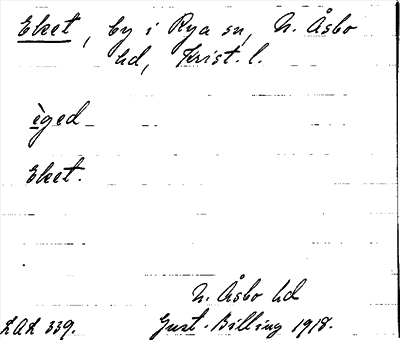 Eket, by i Rya sn, N. Åsbo
hd, Krist. l.
èged
Eket.
N. Åsbo hd
LAL 339.
Gust. Billing 1918.